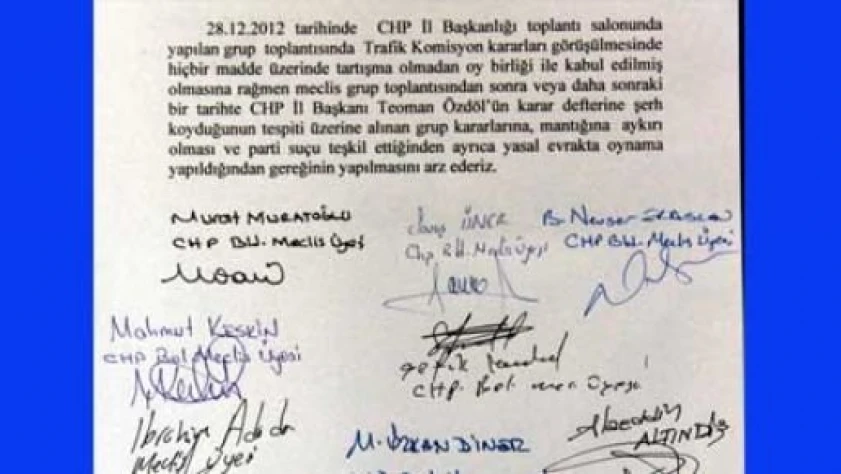 28.12.2012 tarihinde CHP İl Başkanlığı toplantı salonunda
yapılan grup toplantısında Trafik Komisyon kararları görüşülmesinde
hiçbir madde üzerinde tartışma olmadan oy birliği ile kabul edilmiş
olmasına rağmen meclis grup toplantısından sonra veya daha sonraki
bir tarihte CHP İl Başkanı Teoman Özdöl'ün karar defterine şerh
koyduğunun tespiti üzerine alınan grup kararlarına, mantığına aykırı
olması ve parti suçu teşkil ettiğinden ayrıca yasal evrakta oynama
yapıldığından gereğinin yapılmasını arz ederiz.
Murat Muratoğlu
CHP BH. Meclis Üyesi
ÜNER
Chp B.H. Meclis Üyesi
B. Nevser
CHP BH. Meclis Üyesi
Mahmut KESKİN
CHP Bel Meclis Üyesi
CHP. Bel.
İbrahim
Meclis Üyesi
M. ÖZKAN DİNER
Alaeddin
ALTINDİŞ